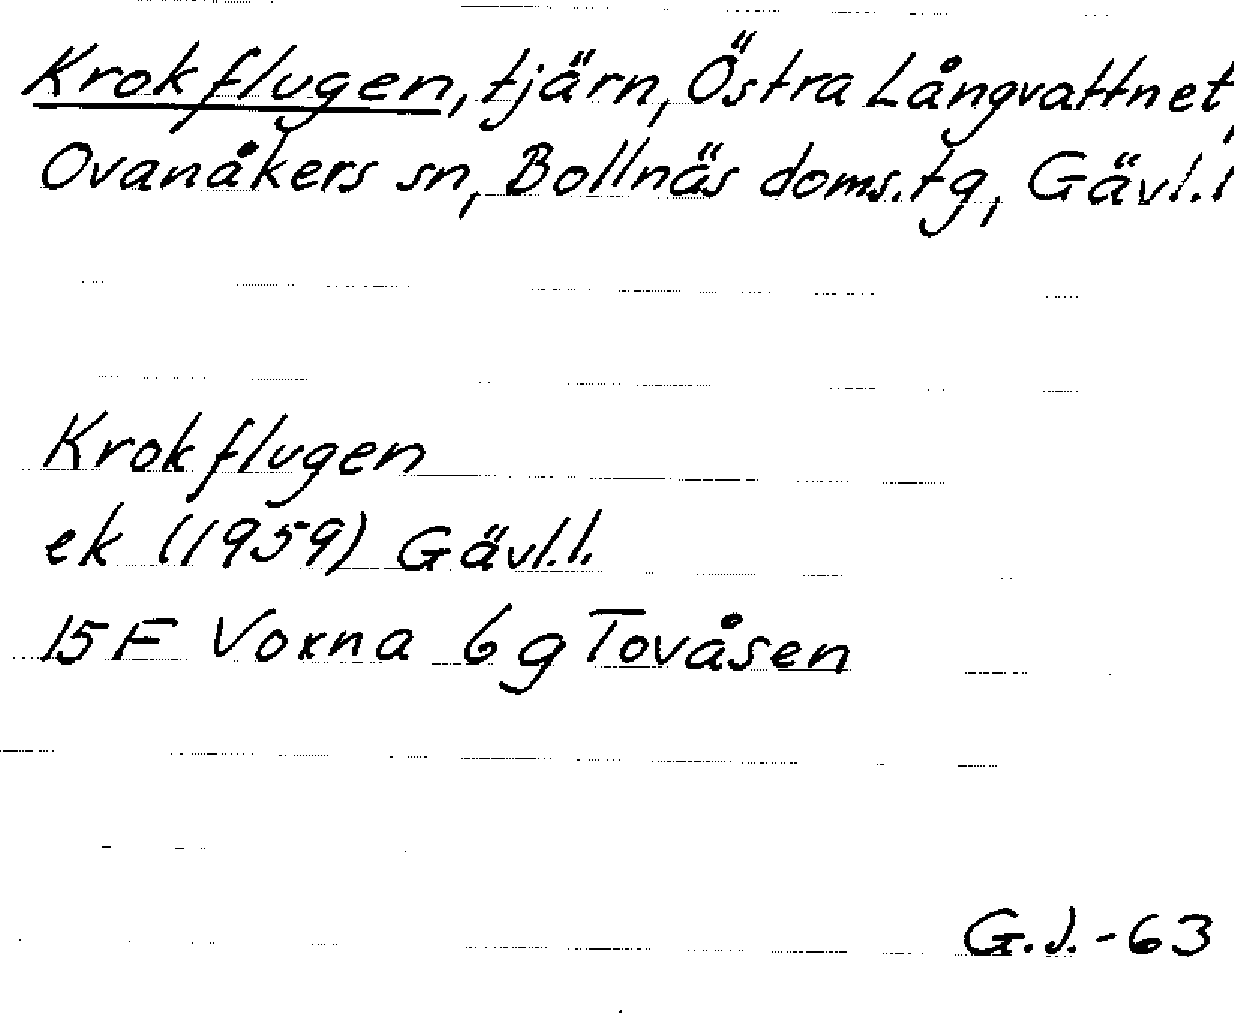 Krokflugen, tjärn, Östra Långvattnet,
Ovanåkers sn, Bollnäs doms.tg, Gävl.l
Krokflugen
ek (1959) Gävl.l.
15F Voxna 6g Tovåsen
G.J.-63